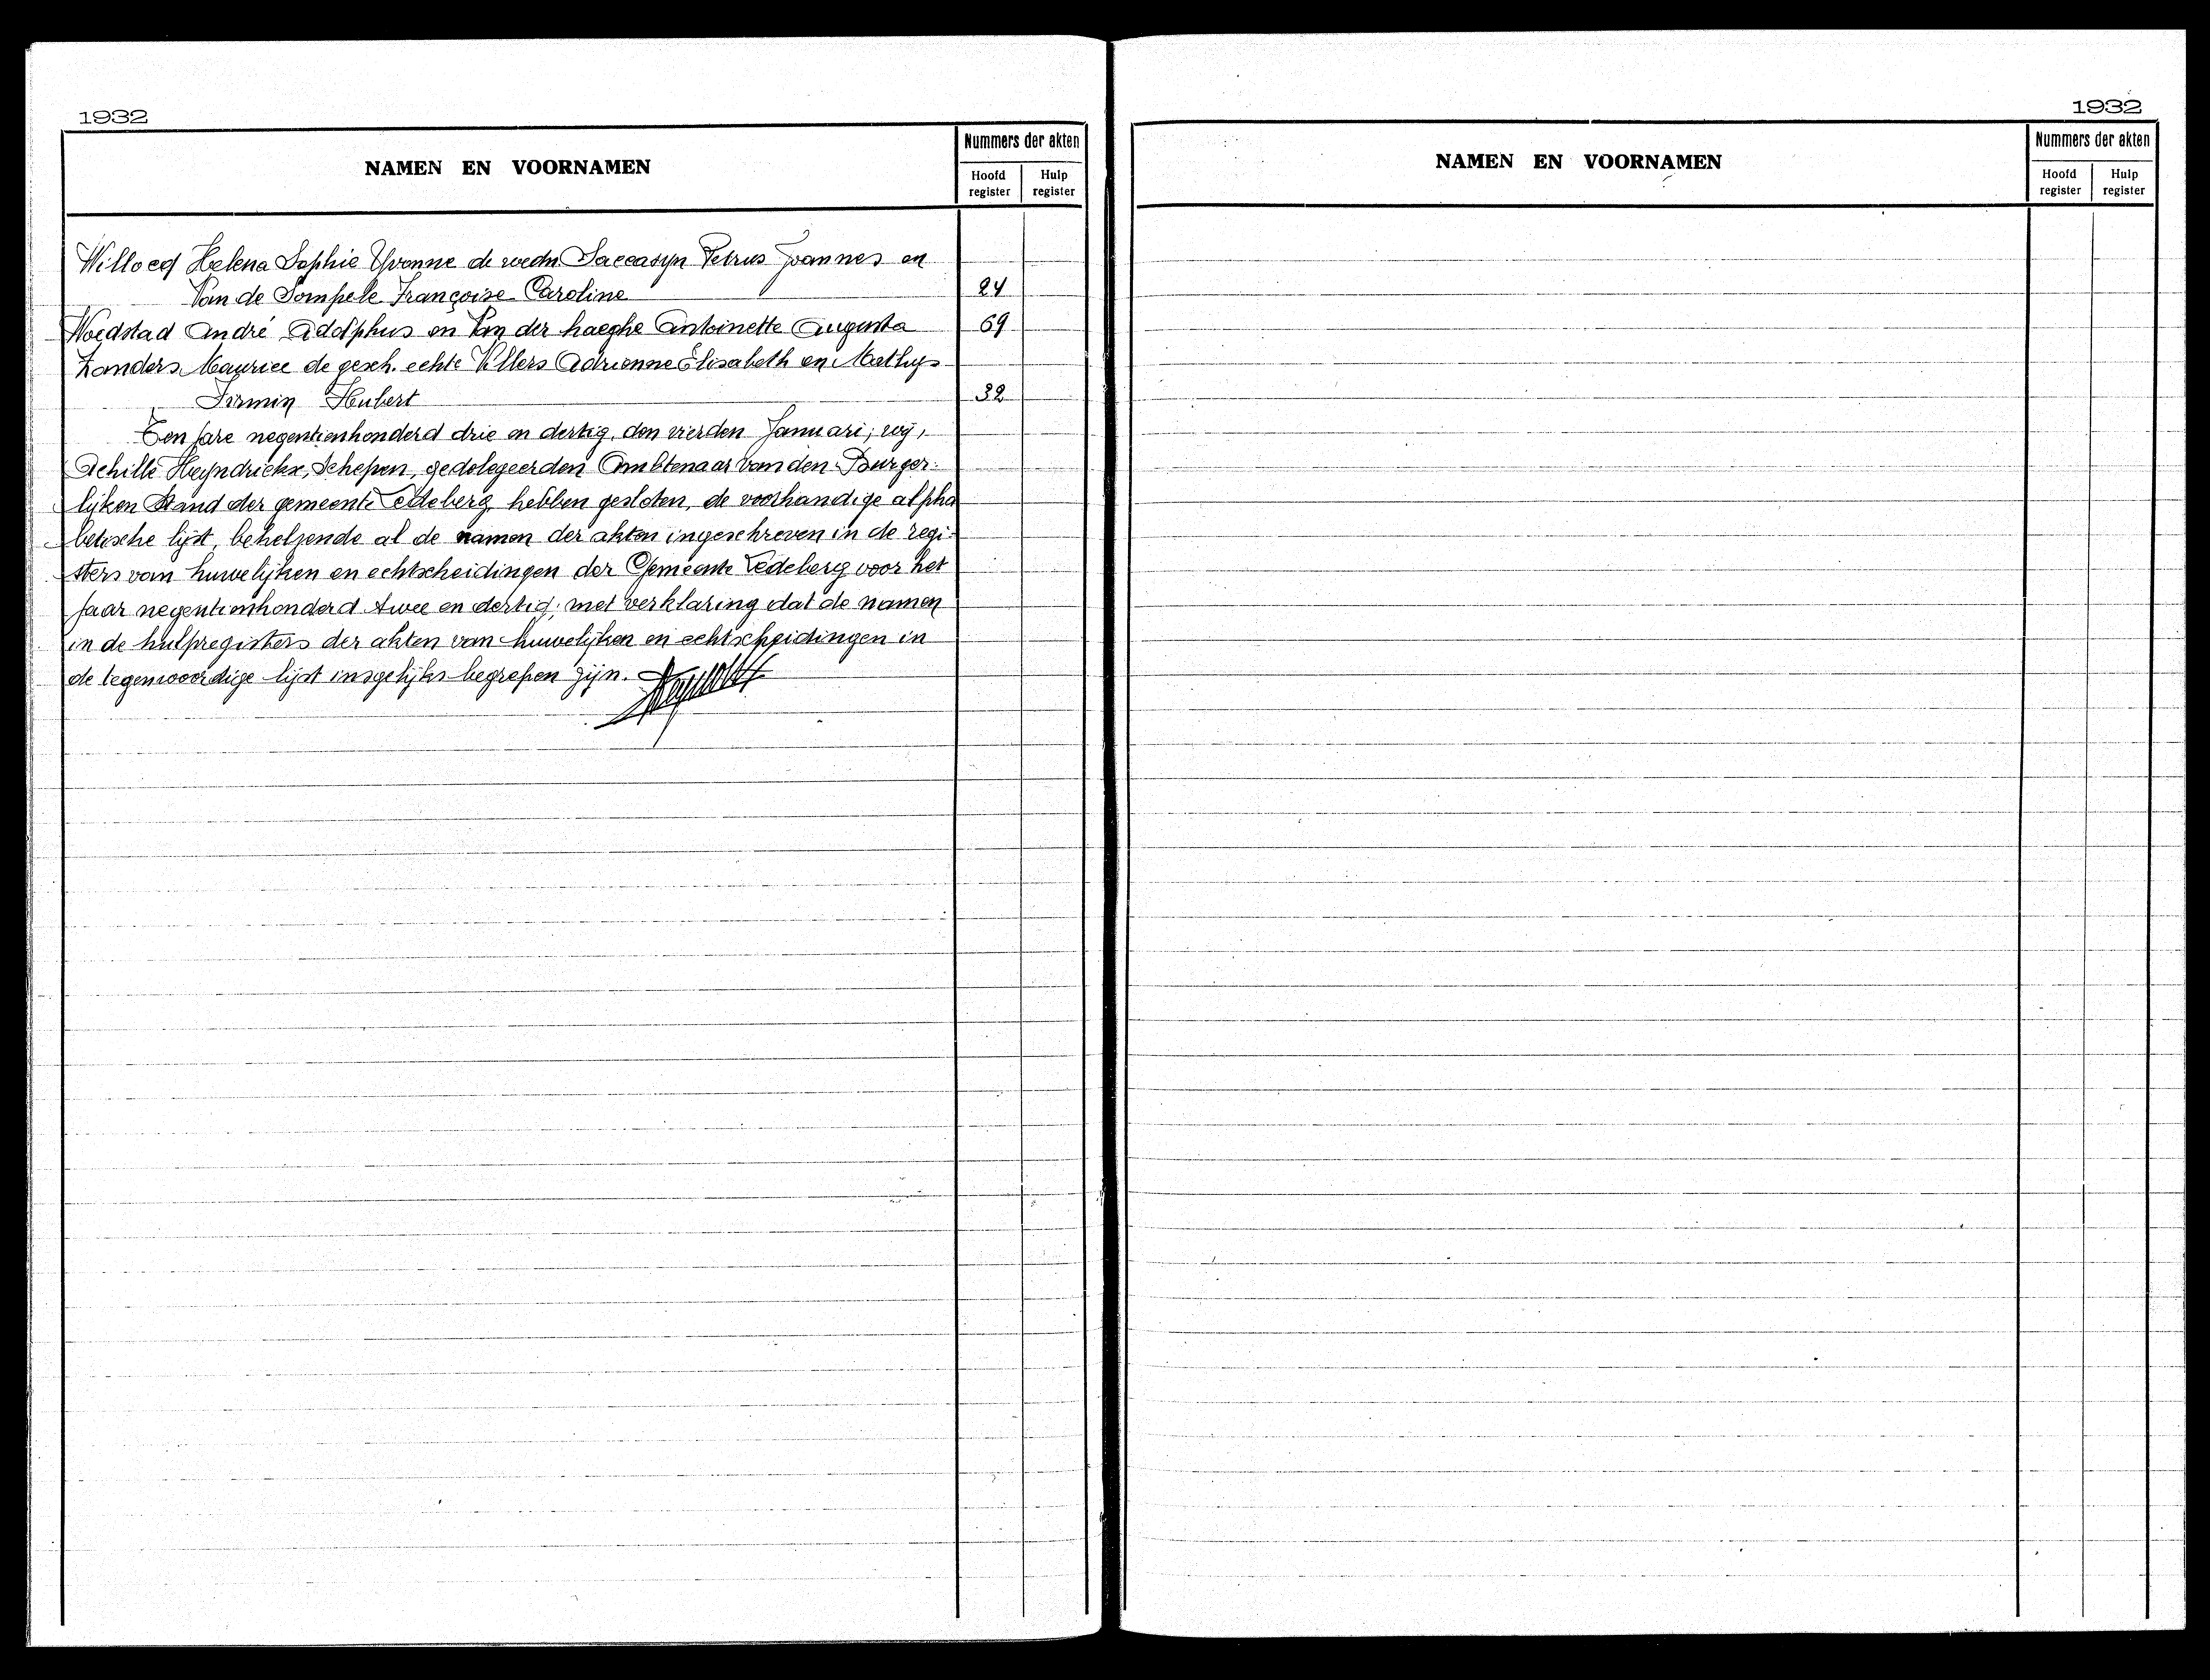 1932
NAMEN EN VOORNAMEN
Nummers der akten
Hoofd register
Hulp register
Willocq Helena Sophie Yvonne de wedn. Saccasyn Petrus Joannes en
Van de Sompele Françoise Caroline 24
Woedstad André Adolphus en Van der haeghe Antoinette Augusta 69
Zanders Maurice de gesch. echte Villers Adrienne Elisabeth en Mathys
Firmin Hubert 32
Ten jare negentienhonderd drie en dertig, den vierden Januari; wij,
Achille Heyndrickx, Schepen, gedelegeerden Ambtenaar van den Burger-
lijken Stand der gemeente Ledeberg, hebben gesloten, de voorhandige alpha
betische lijst, behelzende al de namen der akten ingeschreven in de regi-
sters van huwelijken en echtscheidingen der Gemeente Ledeberg voor het
jaar negentienhonderd twee en dertig; met verklaring dat de namen
in de hulpregisters der akten van huwelijken en echtscheidingen in
de tegenwoordige lijst insgelijks begrepen zijn.
1932
NAMEN EN VOORNAMEN
Nummers der akten
Hoofd register
Hulp register